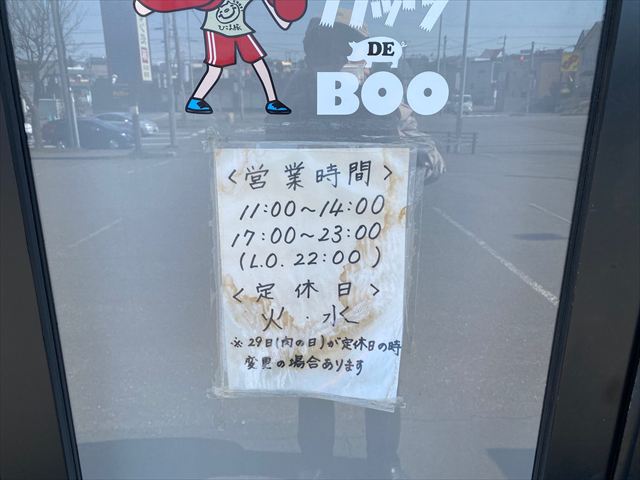 DE
BOO
<営業時間>
11:00~14:00
17:00~23:00
(L.O. 22:00 )
<定休日>
火・水
※29日(肉の日)が定休日の時
変更の場合あります